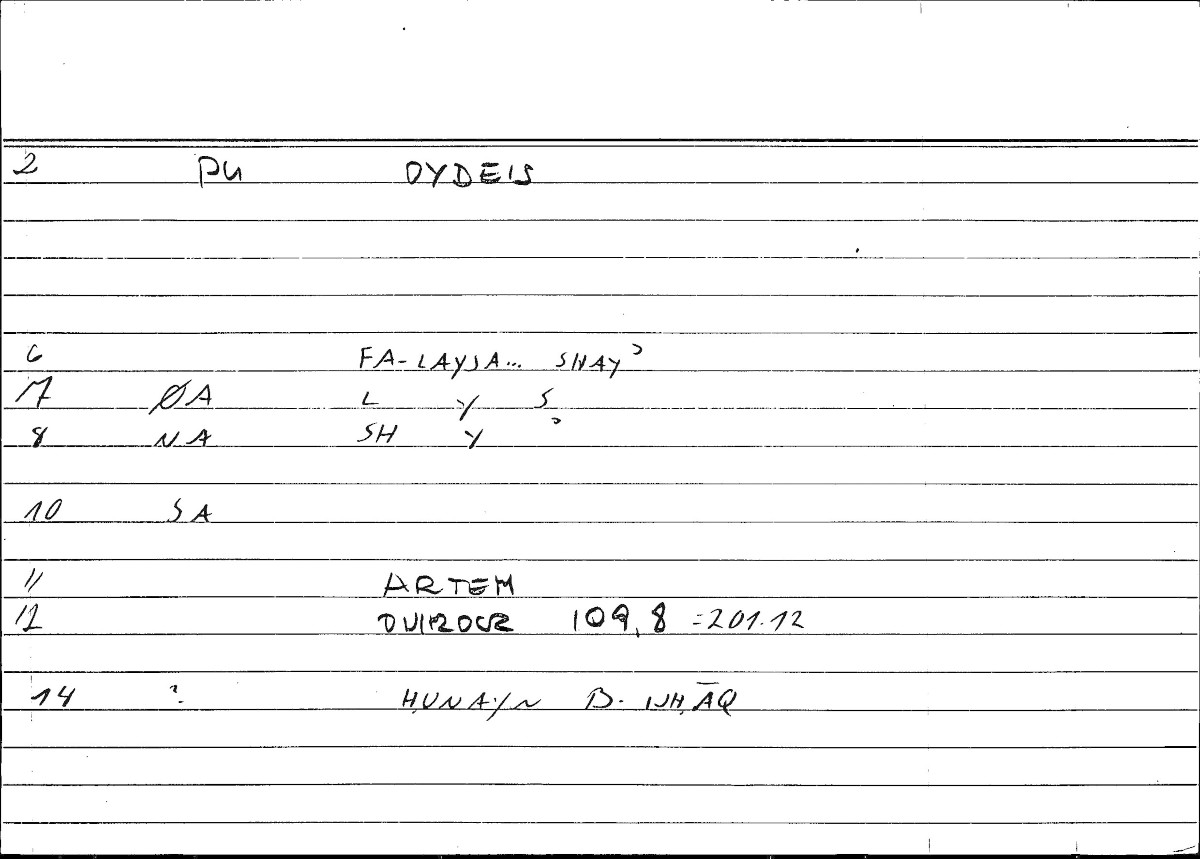 2 PN OYDEIS
6 FA-LAYSA... SHAYʾ
7 ØA L Y S
8 NA SH Y ʾ
10 SA
11 ARTEM
12 ONIROCR 109,8 =201.12
14 ? ḤUNAYN B. ISḤĀQ